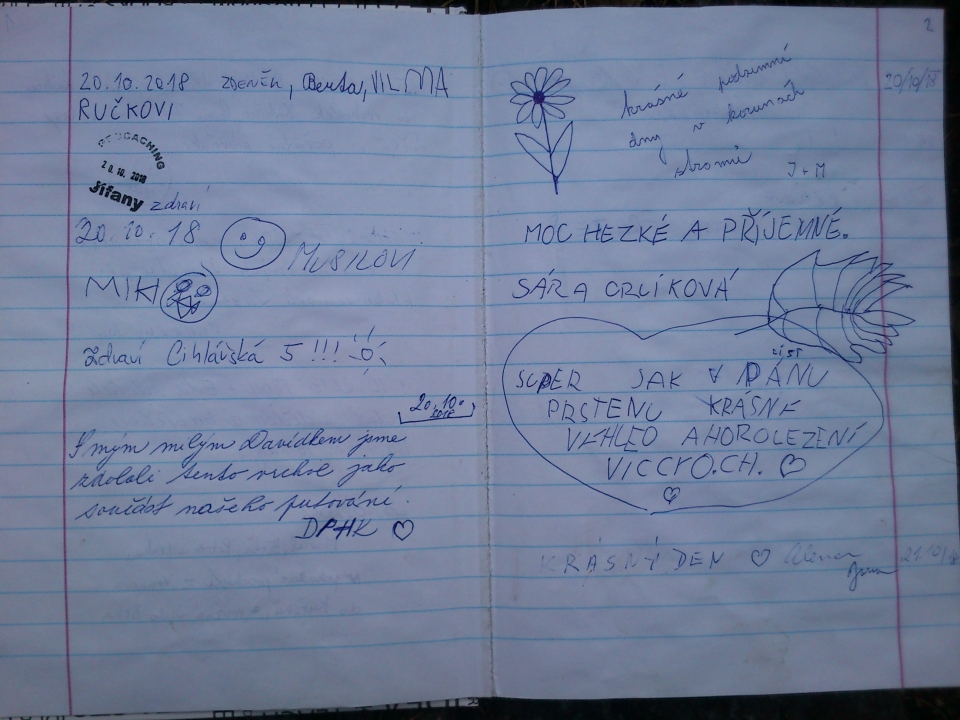 20.10.2018 ZDENĚK, Berta, VILMA
RUČKOVI
GEOCACHING
20.10.2018
Jifany zdraví
20.10.18
MUSILOVI
MIK
Zdraví Cihlářská 5!!!
20.10.
2018
S mým milým Davídkem jsme
zdolali tento vrchol jako
součást našeho putování.
DPHK ♡
2
krásné podzimní
20/10/18
dny v korunách
stromů
J+M
MOC HEZKÉ A PŘÍJEMNÉ.
SÁRA
LÍST
SUPER JAK V PÁNU
PRSTENU KRÁSNE
VÝHLED A HOROLEZENÍ
♡
♡
KRÁSNÝ DEN ♡ Alena
21.10